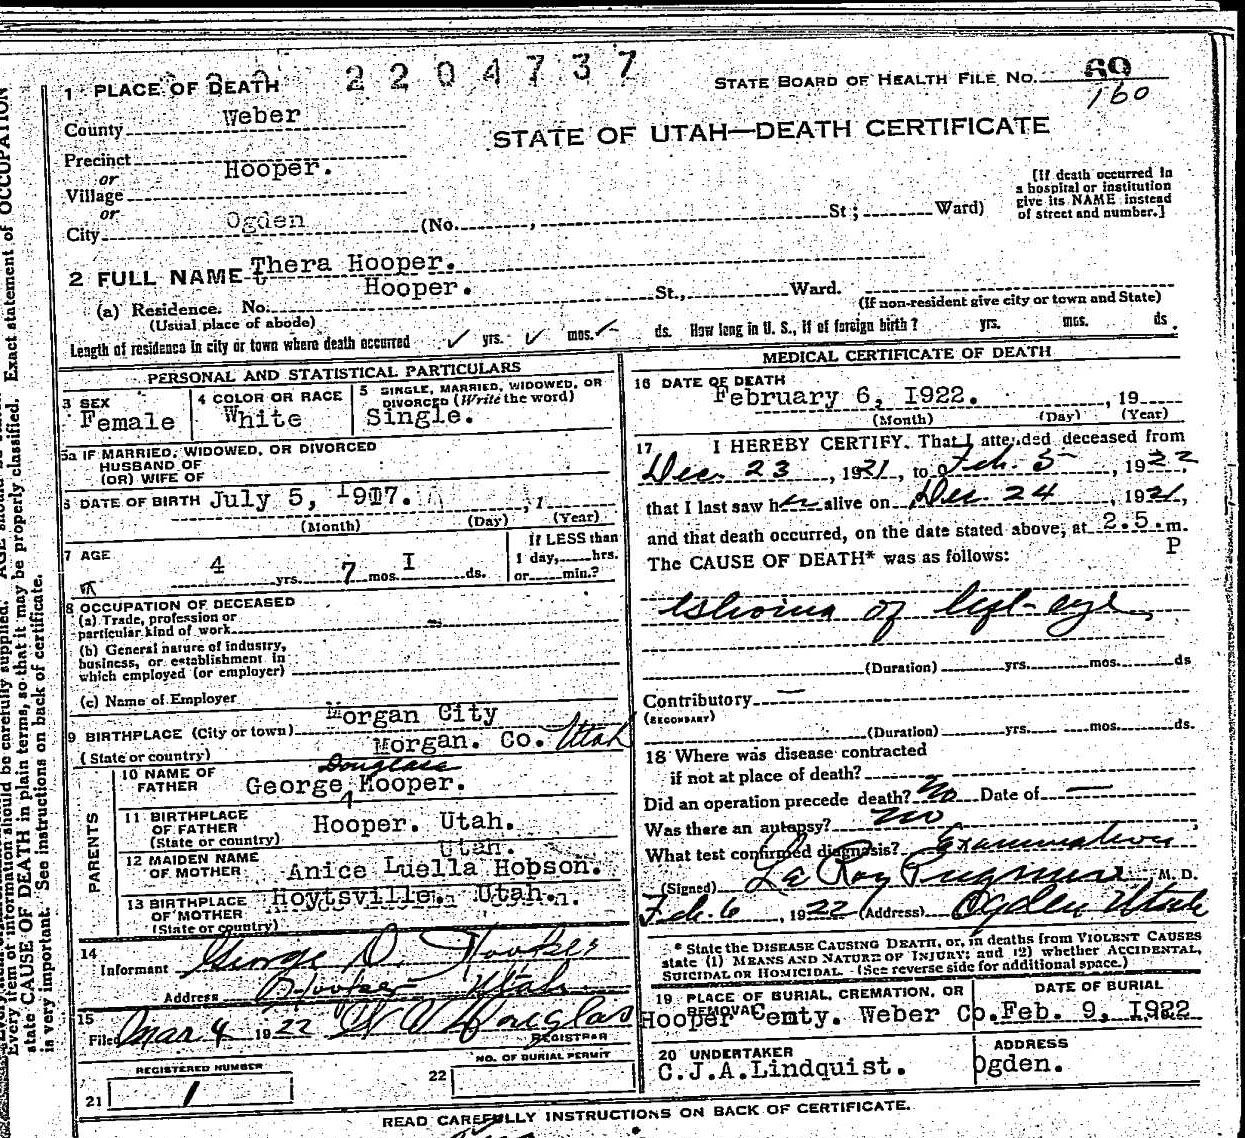 2204737
STATE BOARD OF HEALTH FILE No. 69
160
1 PLACE OF DEATH
County Weber
STATE OF UTAH—DEATH CERTIFICATE
Precinct
or Hooper.
Village
or
City Ogden (No. , St; Ward)
[If death occurred in
a hospital or institution
give its NAME instead
of street and number.]
2 FULL NAME Thera Hooper.
(a) Residence. No. Hooper. St., Ward.
(Usual place of abode) (If non-resident give city or town and State)
Length of residence in city or town where death occurred ✓ yrs. ✓ mos. ✓ ds. How long in U. S., if of foreign birth? yrs. mos. ds.
PERSONAL AND STATISTICAL PARTICULARS
3 SEX
Female
4 COLOR OR RACE
White
5 SINGLE, MARRIED, WIDOWED, OR
DIVORCED (Write the word)
Single.
5a IF MARRIED, WIDOWED, OR DIVORCED
HUSBAND OF
(OR) WIFE OF
6 DATE OF BIRTH July 5, 1917. , 1
(Month) (Day) (Year)
7 AGE
4 yrs. 7 mos. I ds.
If LESS than
1 day, hrs.
or min.?
8 OCCUPATION OF DECEASED
(a) Trade, profession or
particular kind of work
(b) General nature of industry,
business, or establishment in
which employed (or employer)
(c) Name of Employer
9 BIRTHPLACE (City or town) Morgan City
(State or country) Morgan. Co. Utah
PARENTS
10 NAME OF
FATHER
Douglass
George Hooper.
11 BIRTHPLACE
OF FATHER
(State or country)
Hooper. Utah.
12 MAIDEN NAME
OF MOTHER
Utah.
Anice Luella Hobson.
13 BIRTHPLACE
OF MOTHER
(State or country)
Hoytsville. Utah.
14
Informant George D. Hooper
Address Hooper Utah
15
Filed Mar 4 1922
REGISTRAR
REGISTERED NUMBER
21 1
NO. OF BURIAL PERMIT
22
MEDICAL CERTIFICATE OF DEATH
16 DATE OF DEATH
February 6, I922. , 19
(Month) (Day) (Year)
17 I HEREBY CERTIFY. That I attended deceased from
Dec. 23, 1921, to Feb. 5, 1922,
that I last saw her alive on Dec. 24, 1921,
and that death occurred, on the date stated above, at 2.5.m.
P
The CAUSE OF DEATH* was as follows:
of left eye,
(Duration) yrs. mos. ds
Contributory —
(SECONDARY)
(Duration) yrs. mos. ds.
18 Where was disease contracted
if not at place of death?
Did an operation precede death? No Date of —
Was there an autopsy? No
What test confirmed diagnosis? Examination
(Signed) M. D.
Feb. 6, 1922 (Address) Ogden Utah
* State the DISEASE CAUSING DEATH, or, in deaths from VIOLENT CAUSES
state (1) MEANS AND NATURE OF INJURY; and (2) whether ACCIDENTAL,
SUICIDAL OR HOMICIDAL. (See reverse side for additional space.)
19 PLACE OF BURIAL, CREMATION, OR
REMOVAL
Hooper Cemty. Weber Co.
DATE OF BURIAL
Feb. 9, I922
20 UNDERTAKER
C.J.A.Lindquist.
ADDRESS
Ogden.
READ CAREFULLY INSTRUCTIONS ON BACK OF CERTIFICATE.
Every item of information should be carefully supplied. AGE should be
state CAUSE OF DEATH in plain terms, so that it may be properly classified. Exact statement of OCCUPATION
is very important. See instructions on back of certificate.